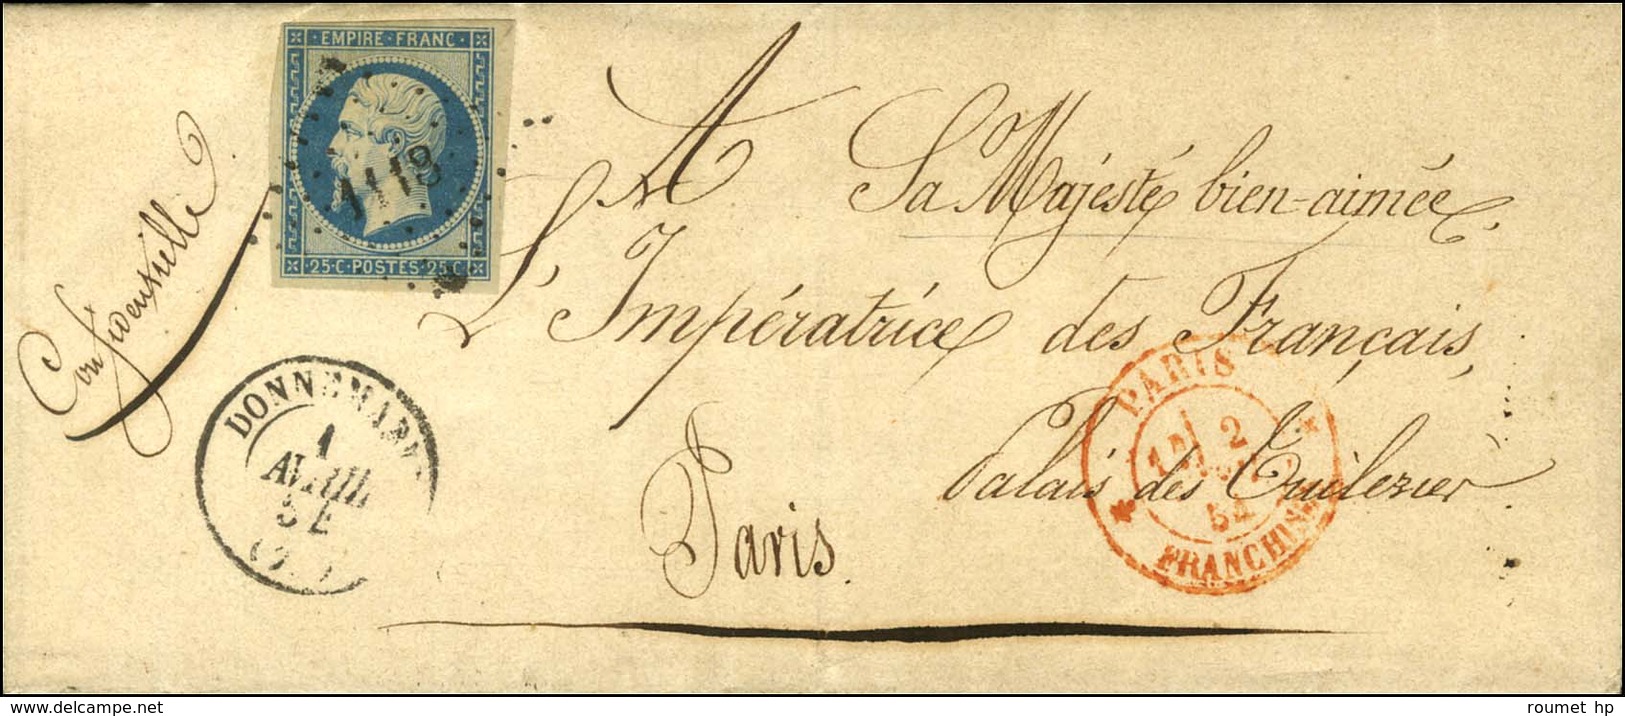 EMPIRE · FRANC ·
1118
25·C·POSTES·25·C
Confidentielle
A Sa Majesté bien-aimée,
L'Impératrice des Français,
Palais des Tuilezier
Paris.
DONNEMARIE
1
AVRIL
54
PARIS
2
54
FRANCHISE
delcampe.net
roumet hp